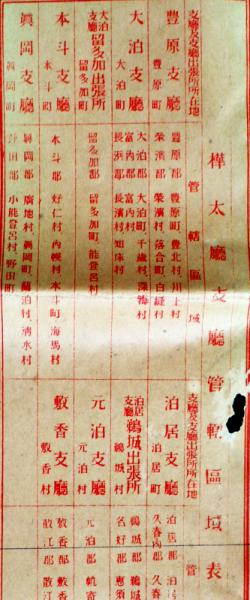 樺太廳支廳管轄區域表
支廳及支廳出張所所在地
管轄區域
豊原支廳
豊原町
豊原郡 豊原町 豊北村 川上村
榮濱郡 榮濱村 落合町 白縫村
大泊支廳
大泊町
大泊郡 大泊町 千歳村 深海村
富內郡 富內村
長濱郡 長濱村 知床村
大泊支廳留多加出張所
留多加町
留多加郡 留多加町 能登呂村
本斗支廳
本斗町
本斗郡 好仁村 內幌村 本斗町 海馬村
眞岡支廳
眞岡町
眞岡郡 廣地村 眞岡町 蘭泊村 清水村
野田郡 小能登呂村 野田町
支廳及支廳出張所所在地
管
泊居支廳
泊居町
泊居郡 泊
久春內郡 久春
泊居支廳鵜城出張所
鵜城村
鵜城郡 鵜城
名好郡 惠須
元泊支廳
元泊村
元泊郡 帆寄
敷香支廳
敷香村
敷香郡 敷香
散江郡 散江